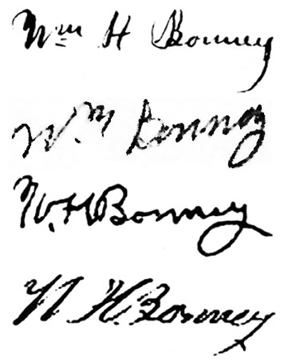 Wm H Bonney
W.m Bonney
W. H Bonney
W H. Bonney